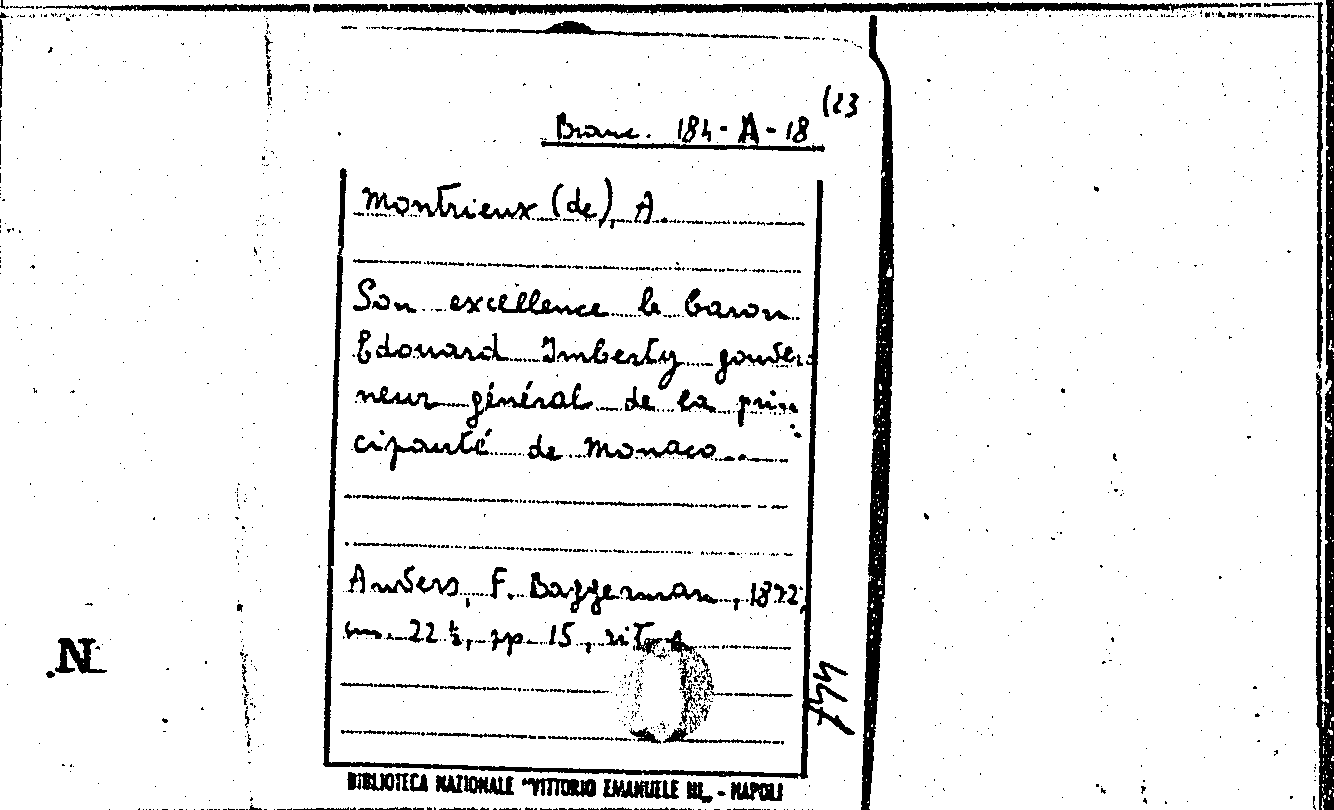 (23
Branc. 184-A-18
Montrieux (de), A.
Son excellence le baron
Edouard Imberty gouver-
neur général de la prin
cipauté de Monaco..
Anvers, F. Baggerman, 1872,
cm. 22 ½, pp. 15, rit.
N
BIBLIOTECA NAZIONALE "VITTORIO EMANUELE III„ - NAPOLI